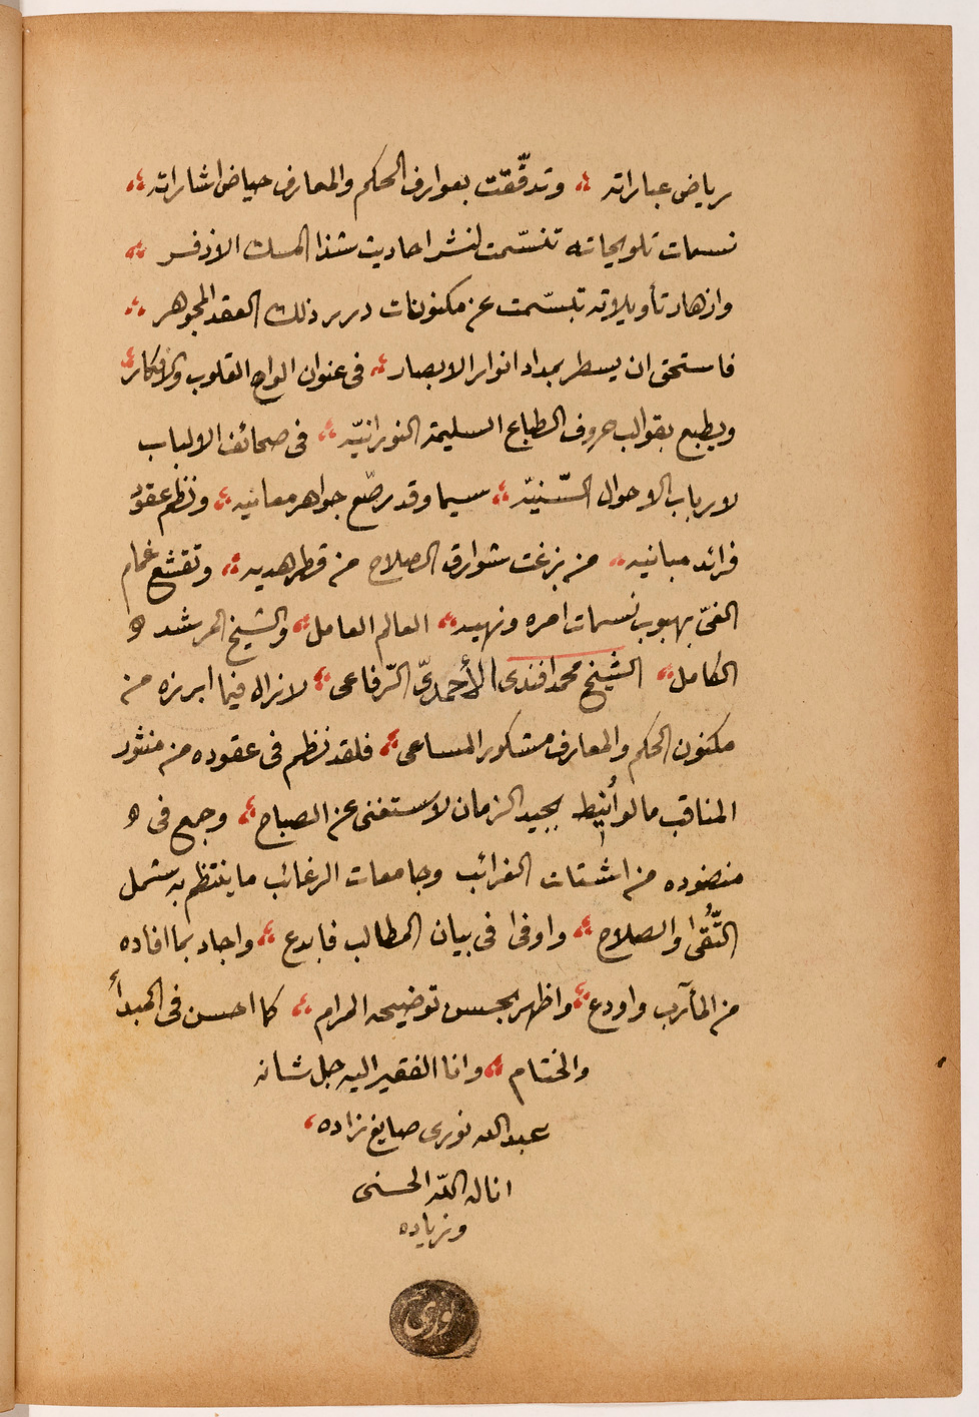 رياض عباراته وتدفّقت بعوارف الحكم والمعارف حياض اشاراته
نسمات تلويحاته تنسّمت لنشر احاديث شذا المسك الاذفر
وازهار تأويلاته تبسّمت عن مكنونات درر ذلك العقد المجوهر
فاستحق ان يسطر بمداد انوار الابصار فى عنوان الواح القلوب والافكار
ويطبع بقوالب حروف الطباع السليمة النورانيّه فى صحائف الالباب
لارباب الاحوال السّنيّه سيما وقد رصّع جواهر معانيه ونظم عقود
فرائد مبانيه من بزغت شوارق الصلاح من قطر هديه وتقشع غمام
الغىّ بهبوب نسمات امره ونهيه العالم العامل والشيخ المرشد
الكامل الشيخ محمد افندى الأحمدىّ الرّفاعى لا زال فيما ابرزه من
مكنون الحكم والمعارف مشكور المساعى فلقد نظم فى عقوده من منثور
المناقب ما لو أُنيط بجيد الزمان لاستغنى عن الصباح وجمع فى
منضوده من اشتات الغرائب وجامعات الرغائب ما ينتظم به شمل
التُّقى والصلاح واوفى فى بيان المطالب فابدع واجاد بما افاده
من المآرب واودع واظهر بحسن توضيحه المرام كما احسن فى المبدأ
والختام وانا الفقير اليه جل شانه
عبد الله نورى صايغ زاده
اناله اللّه الحسنى
وزياده
نورى